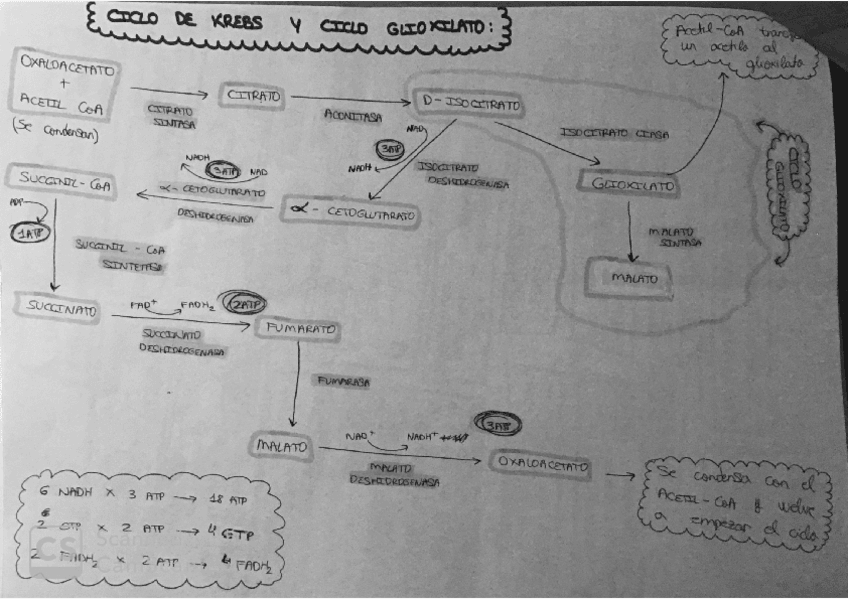 CICLO DE KREBS Y CICLO GLIOXILATO:
Acetil-CoA
un acetilo al
glioxilato
OXALOACETATO
+
ACETIL CoA
(Se condensan)
CITRATO
SINTASA
CITRATO
ACONITASA
D-ISOCITRATO
ISOCITRATO LIASA
GLIOXILATO
MALATO
SINTASA
MALATO
CICLO
GLIOXILATO
NAD
3ATP
NADH
ISOCITRATO
DESHIDROGENASA
α-CETOGLUTARATO
NADH
3ATP
NAD
α-CETOGLUTARATO
DESHIDROGENASA
SUCCINIL-CoA
ADP
1ATP
SUCCINIL-CoA
SUCCINATO
FAD+
FADH2
2ATP
SUCCINATO
DESHIDROGENASA
FUMARATO
FUMARASA
MALATO
NAD+
NADH+
3ATP
MALATO
DESHIDROGENASA
OXALOACETATO
Se condensa con el
ACETIL-CoA y vuelve
a empezar el ciclo
6 NADH x 3 ATP → 18 ATP
2 GTP x 2 ATP → 4 GTP
2 FADH2 x 2 ATP → 4 FADH2
CS